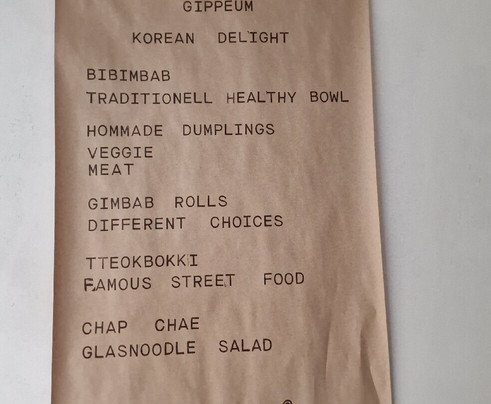 GIPPEUM
KOREAN DELIGHT
BIBIMBAB
TRADITIONELL HEALTHY BOWL
HOMMADE DUMPLINGS
VEGGIE
MEAT
GIMBAB ROLLS
DIFFERENT CHOICES
TTEOKBOKKI
FAMOUS STREET FOOD
CHAP CHAE
GLASNOODLE SALAD